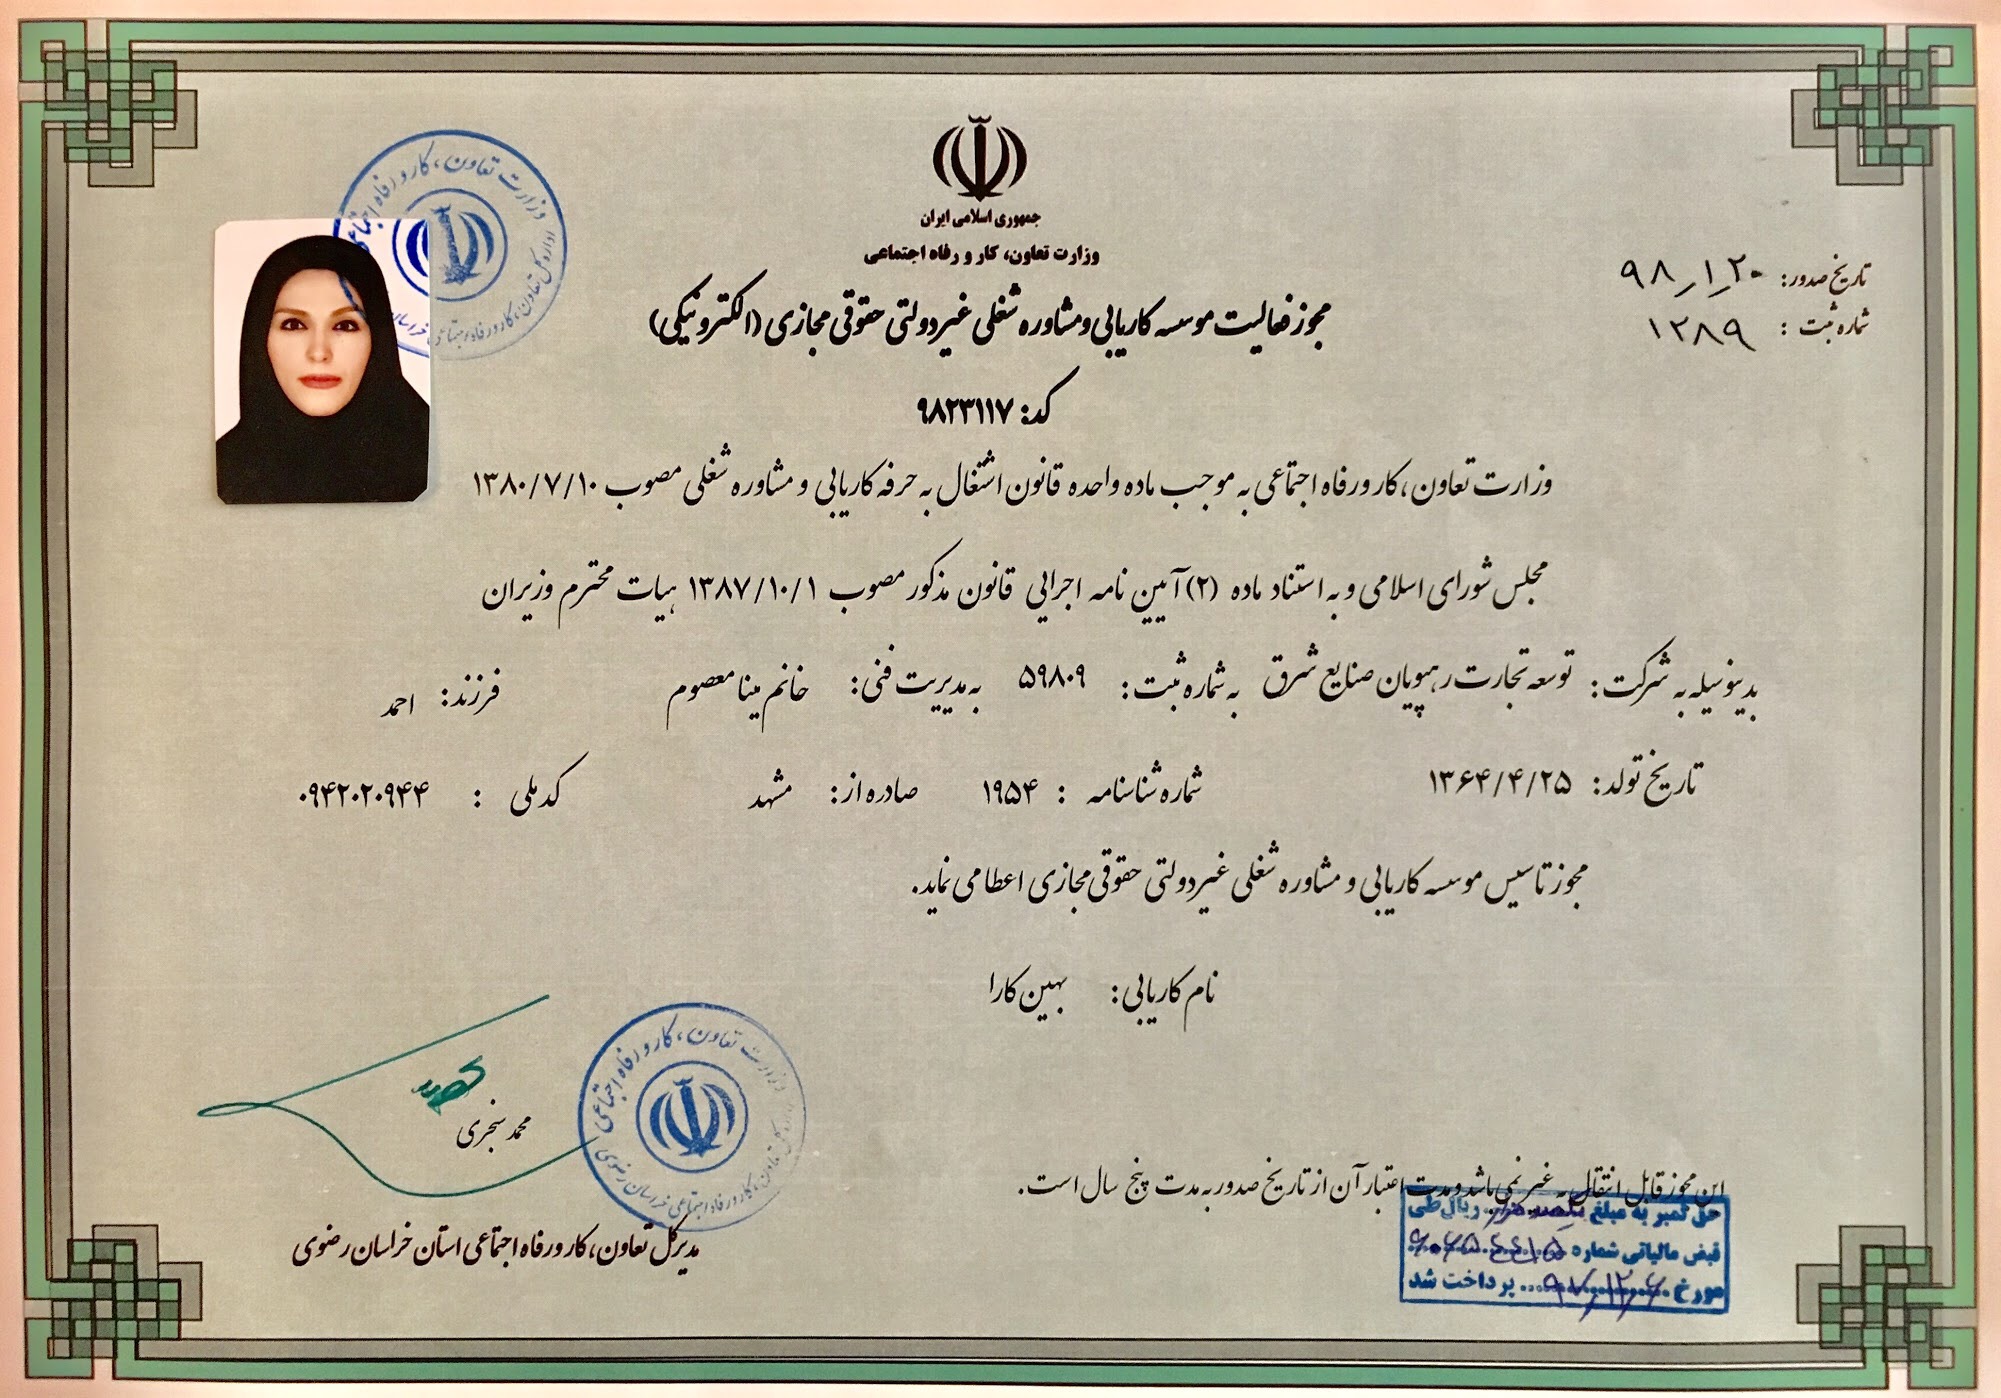 جمهوری اسلامی ایران
وزارت تعاون، کار و رفاه اجتماعی
تاریخ صدور: ۹۸٫۱٫۲۰
شماره ثبت : ۱۲۸۹
مجوز فعالیت موسسه کاریابی و مشاوره شغلی غیردولتی حقوقی مجازی (الکترونیکی)
کد: ۹۸۲۳۱۱۷
وزارت تعاون، کار و رفاه اجتماعی به موجب ماده واحده قانون اشتغال به حرفه کاریابی و مشاوره شغلی مصوب ۱۳۸۰/۷/۱۰
مجلس شورای اسلامی و به استناد ماده (۲) آیین نامه اجرایی قانون مذکور مصوب ۱۳۸۷/۱۰/۱ هیات محترم وزیران
بدینوسیله به شرکت: توسعه تجارت رهپویان صنایع شرق به شماره ثبت: ۵۹۸۰۹ به مدیریت فنی: خانم مینا معصوم فرزند: احمد
تاریخ تولد: ۱۳۶۴/۴/۲۵ شماره شناسنامه : ۱۹۵۴ صادره از: مشهد کد ملی : ۰۹۴۲۰۲۰۹۴۴
مجوز تاسیس موسسه کاریابی و مشاوره شغلی غیردولتی حقوقی مجازی اعطا می نماید.
نام کاریابی: بهین کارا
این مجوز قابل انتقال به غیر نمی باشد و مدت اعتبار آن از تاریخ صدور به مدت پنج سال است.
حق تمبر به مبلغ ریال طی
قبض مالیاتی شماره
مورخ ۹۷٫۱۲٫۶ پرداخت شد
محمد سنجری
مدیرکل تعاون، کار و رفاه اجتماعی استان خراسان رضوی
وزارت تعاون، کار و رفاه اجتماعی
اداره کل تعاون، کار و رفاه اجتماعی خراسان رضوی
وزارت تعاون، کار و رفاه اجتماعی
اداره کل تعاون، کار و رفاه اجتماعی